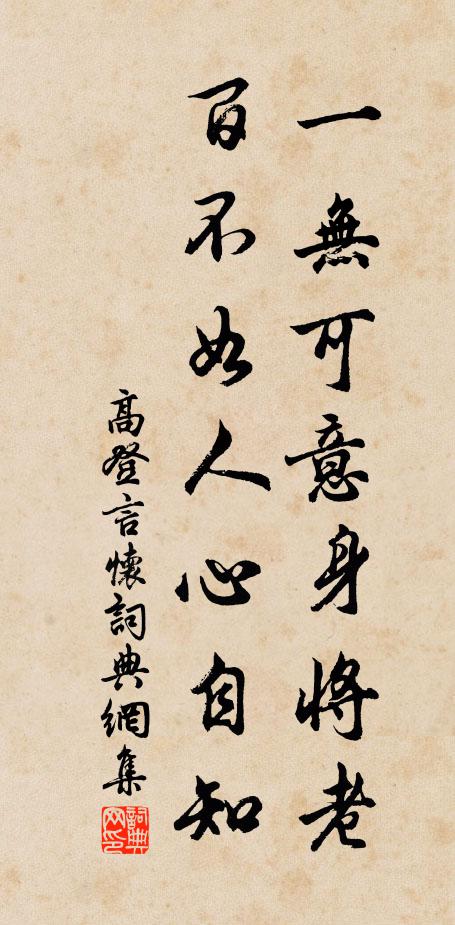 一無可意身將老
百不如人心自知
高登言懷詞典網集
詞典網印